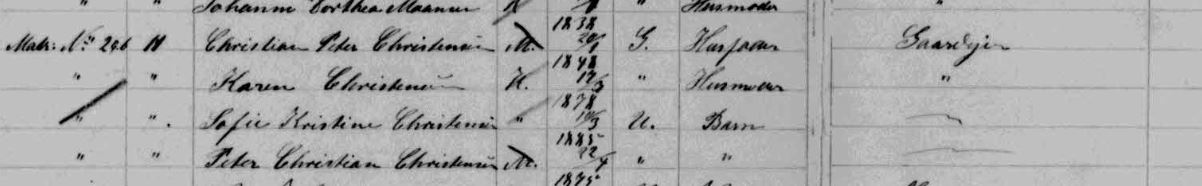 Johanne Dorthea Maanner K " Husmoder "
1838
Matr: No 24b H Christian Peter Christensen M. 20/1 G. Husfader Gaardejer
1848
" " Karen Christensen K. 17/3 " Husmoder "
1878
" " Sofie Kristine Christensen " 10/3 U. Barn
1885
" " Peter Christian Christensen M. 22/4 " "
1875